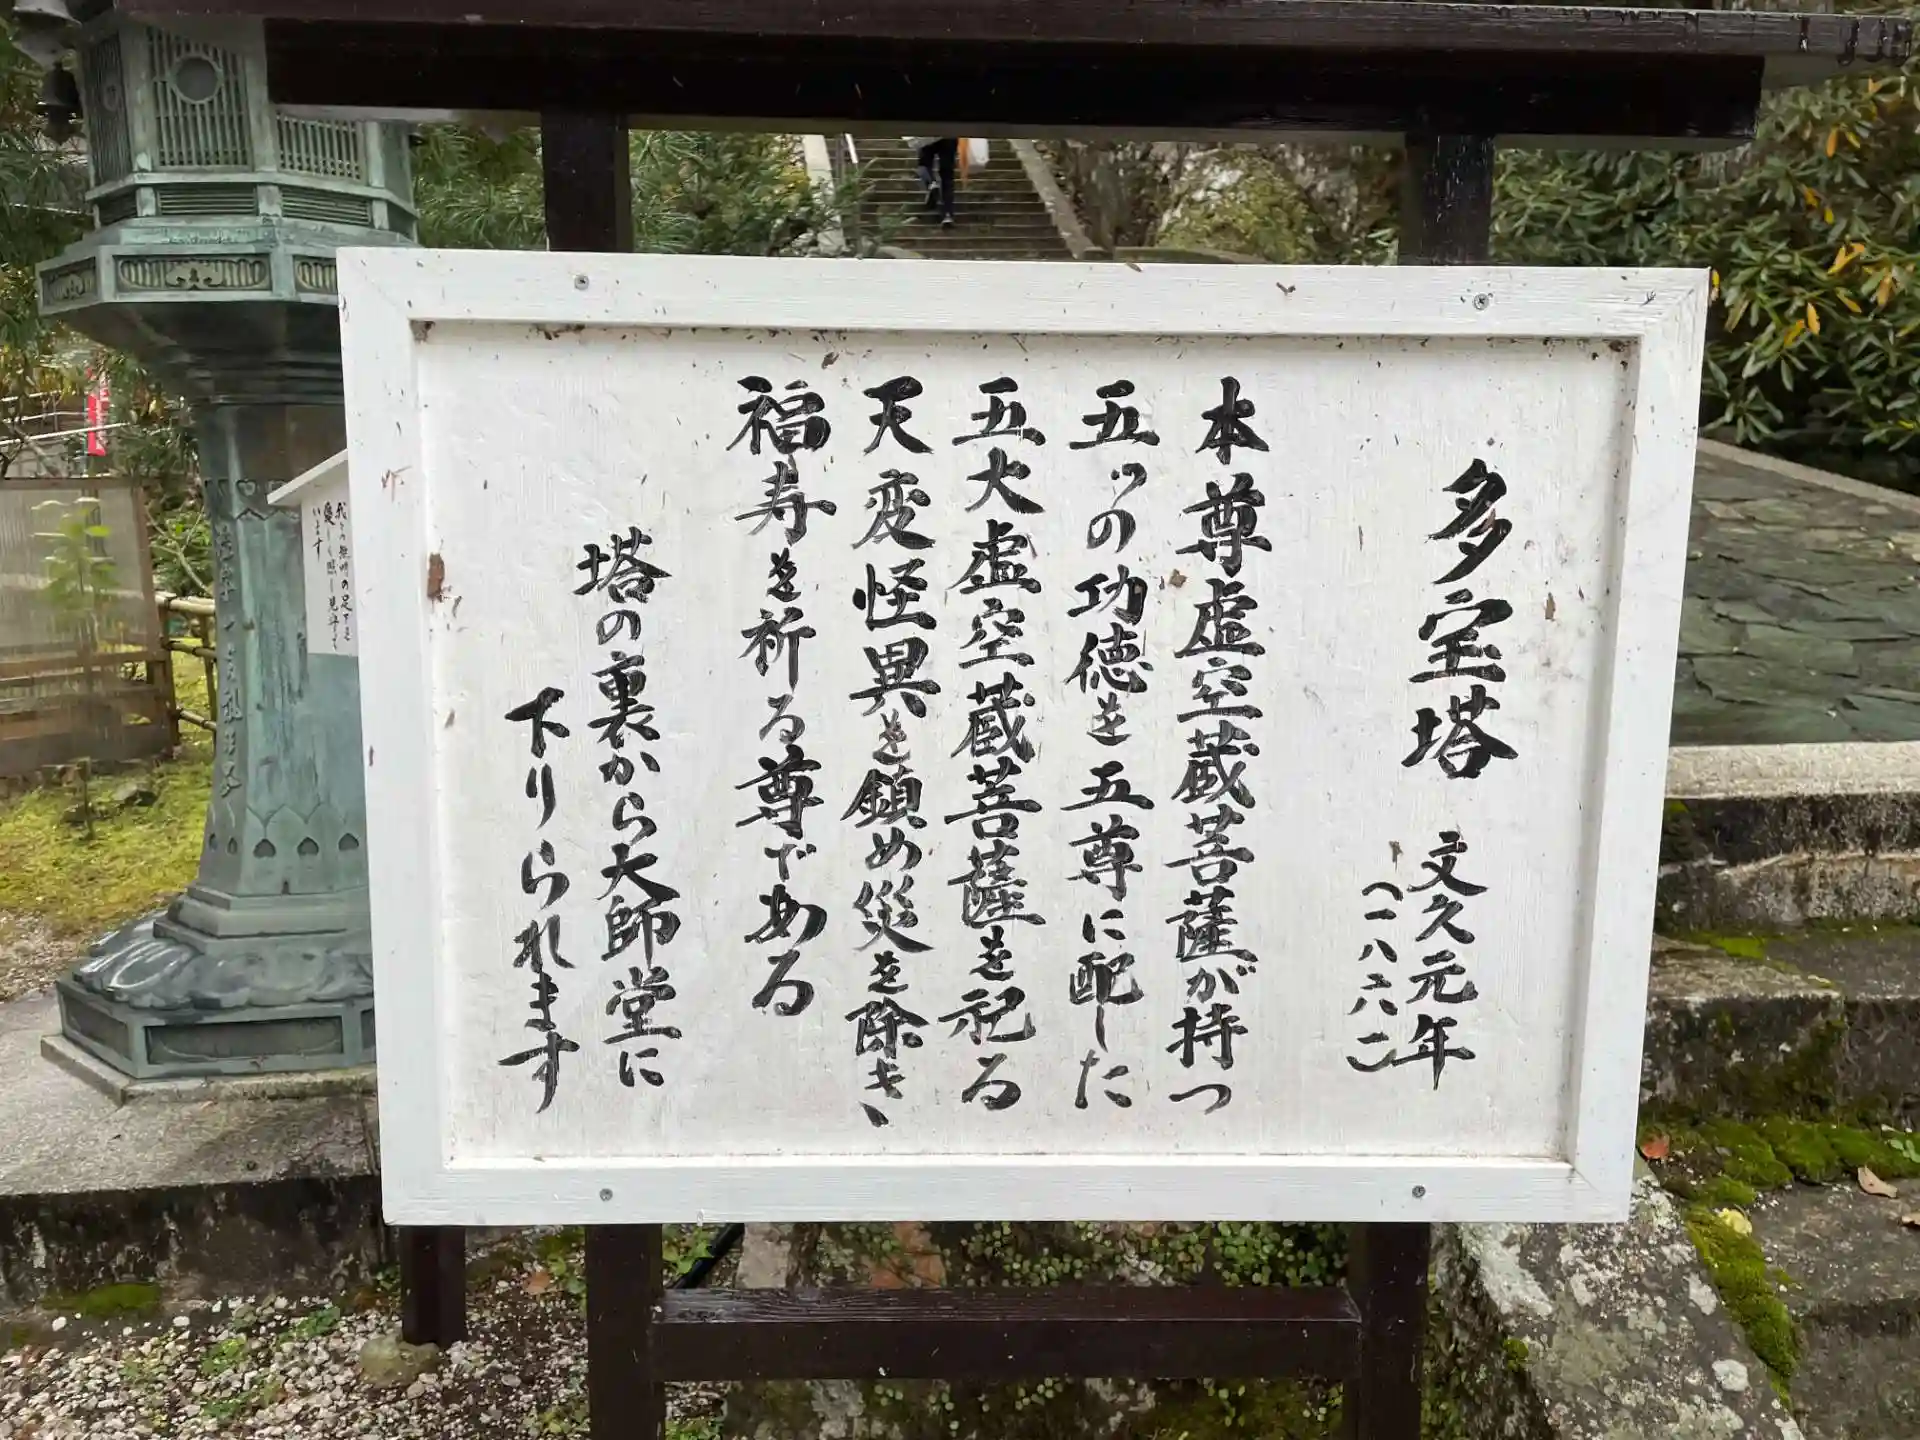 多宝塔 文久元年
(一八六一)
本尊虚空蔵菩薩が持つ
五つの功徳を五尊に配した
五大虚空蔵菩薩を祀る
天変怪異を鎮め災を除き、
福寿を祈る尊である
塔の裏から大師堂に
下りられます